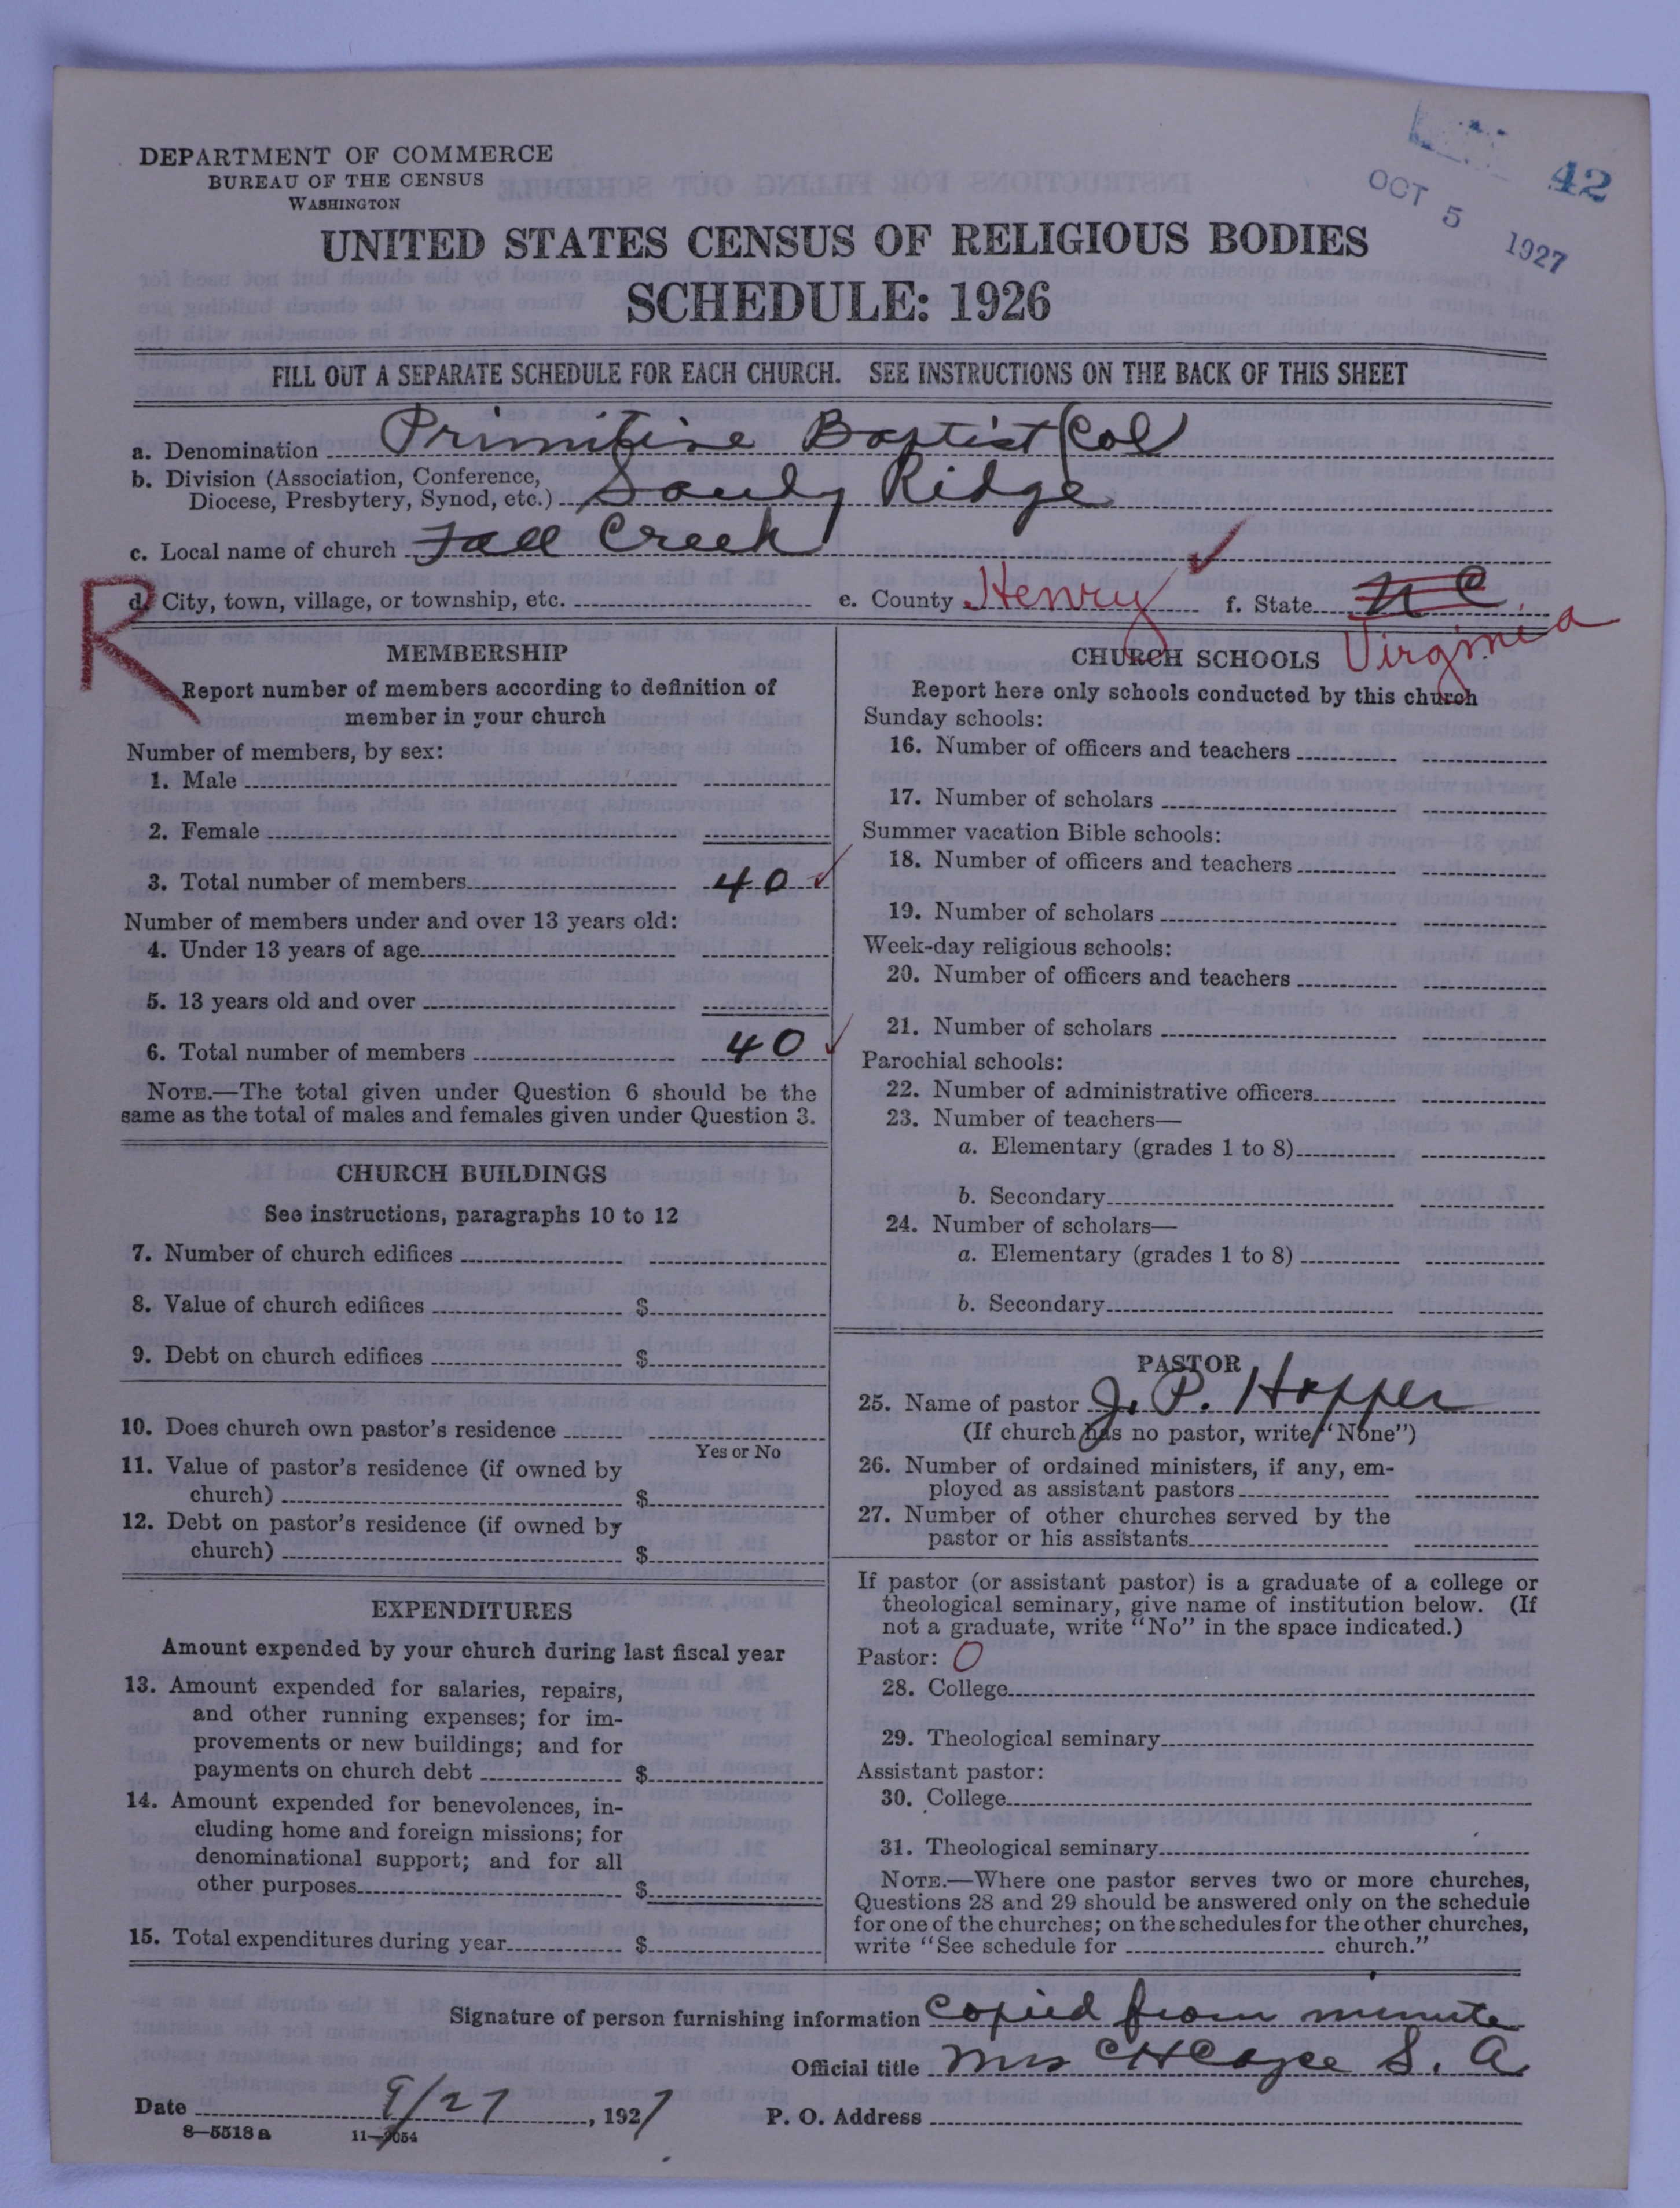 DEPARTMENT OF COMMERCE
BUREAU OF THE CENSUS
WASHINGTON
42
OCT 5 1927
UNITED STATES CENSUS OF RELIGIOUS BODIES
SCHEDULE: 1926
FILL OUT A SEPARATE SCHEDULE FOR EACH CHURCH. SEE INSTRUCTIONS ON THE BACK OF THIS SHEET
a. Denomination Primitive Baptist (Col)
b. Division (Association, Conference,
Diocese, Presbytery, Synod, etc.) Ridge
c. Local name of church Fall Creek
R
d. City, town, village, or township, etc. e. County Henry f. State N C
Virginia
MEMBERSHIP
Report number of members according to definition of
member in your church
Number of members, by sex:
1. Male
2. Female
3. Total number of members 40
Number of members under and over 13 years old:
4. Under 13 years of age
5. 13 years old and over
6. Total number of members 40
NOTE.—The total given under Question 6 should be the
same as the total of males and females given under Question 3.
CHURCH BUILDINGS
See instructions, paragraphs 10 to 12
7. Number of church edifices
8. Value of church edifices $
9. Debt on church edifices $
10. Does church own pastor's residence
Yes or No
11. Value of pastor's residence (if owned by
church) $
12. Debt on pastor's residence (if owned by
church) $
EXPENDITURES
Amount expended by your church during last fiscal year
13. Amount expended for salaries, repairs,
and other running expenses; for im-
provements or new buildings; and for
payments on church debt $
14. Amount expended for benevolences, in-
cluding home and foreign missions; for
denominational support; and for all
other purposes $
15. Total expenditures during year $
CHURCH SCHOOLS
Report here only schools conducted by this church
Sunday schools:
16. Number of officers and teachers
17. Number of scholars
Summer vacation Bible schools:
18. Number of officers and teachers
19. Number of scholars
Week-day religious schools:
20. Number of officers and teachers
21. Number of scholars
Parochial schools:
22. Number of administrative officers
23. Number of teachers—
a. Elementary (grades 1 to 8)
b. Secondary
24. Number of scholars—
a. Elementary (grades 1 to 8)
b. Secondary
PASTOR
25. Name of pastor J. P. Hopper
(If church has no pastor, write "None")
26. Number of ordained ministers, if any, em-
ployed as assistant pastors
27. Number of other churches served by the
pastor or his assistants
If pastor (or assistant pastor) is a graduate of a college or
theological seminary, give name of institution below. (If
not a graduate, write "No" in the space indicated.)
Pastor: O
28. College
29. Theological seminary
Assistant pastor:
30. College
31. Theological seminary
NOTE.—Where one pastor serves two or more churches,
Questions 28 and 29 should be answered only on the schedule
for one of the churches; on the schedules for the other churches,
write "See schedule for church."
Signature of person furnishing information Copied from minute
Official title Mrs C H Cayce S. A
Date 9/27, 1927 P. O. Address
8—5518 a 11—9054